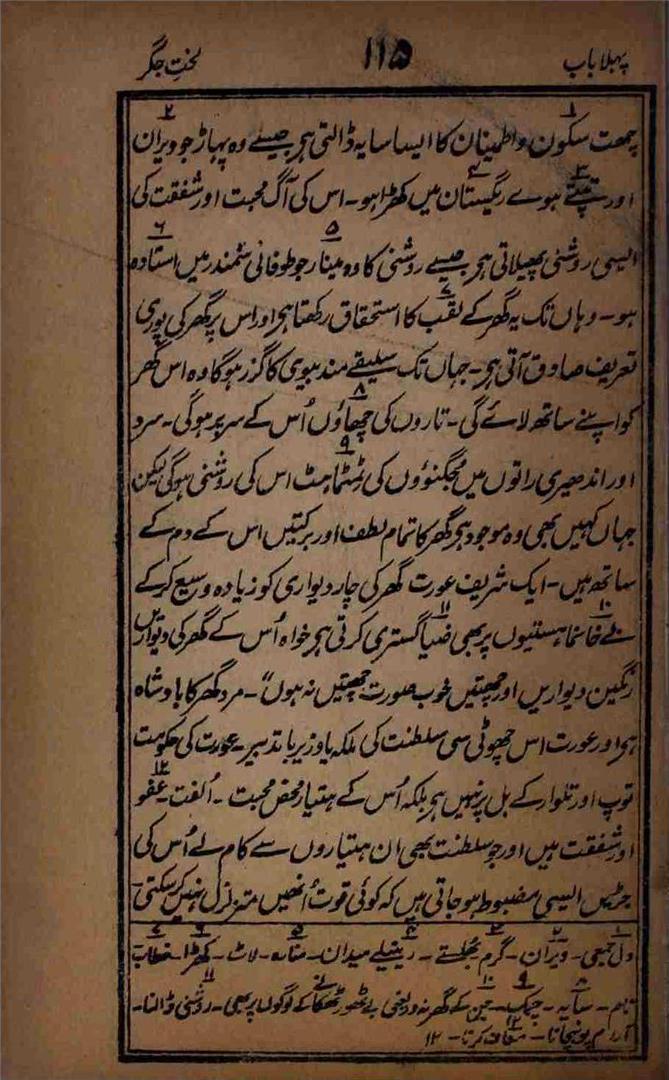 پہلا باب ۱۱۵ لخت جگر
چھت سکون واطمینان کا ایسا سایہ ڈالتی ہی جیسے وہ پہاڑ جو ویران
اور تپتے ہوے ریگستان میں کھڑا ہو۔ اس کی آگ محبت اور شفقت کی
ایسی روشنی پھیلاتی ہی جیسے روشنی کا وہ مینار جو طوفانی سمندر میں استادہ
ہو۔ وہاں تک یہ گھر کے لقب کا استحقاق رکھتا ہی اور اس پر گھر کی پوری
تعریف صادق آتی ہی۔ جہاں تک سلیقے مند بیوی کا گزر ہوگا وہ اس گھر
کو اپنے ساتھ لائے گی۔ تاروں کی چھاؤں اُس کے سر پر ہوگی۔ سرد
اور اندھیری راتوں میں جگنوؤں کی ٹمٹماہٹ اس کی روشنی ہوگی لیکن
جہاں کہیں بھی وہ موجود ہی گھر کا تمام لطف اور برکتیں اس کے دم کے
ساتھ ہیں۔ ایک شریف عورت گھر کی چار دیواری کو زیادہ وسیع کرکے
بے خانماں ہستیوں پر بھی ضیا گستری کرتی ہی خواہ اُس کے گھر کی دیواریں
رنگین دیواریں اور چھتیں خوب صورت چھتیں نہ ہوں“۔ مرد گھر کا بادشاہ
ہی اور عورت اس چھوٹی سی سلطنت کی ملکہ یا وزیر با تدبیر۔ عورت کی حکومت
توپ اور تلوار کے بل پر نہیں ہی بلکہ اُس کے ہتیار محض محبت۔ اُلفت۔ عفو
اور شفقت ہیں اور جو سلطنت بھی ان ہتیاروں سے کام لے اُس کی
جڑیں ایسی مضبوط ہو جاتی ہیں کہ کوئی قوت اُنھیں متزلزل نہیں کرسکتی۔
دل جمعی۔ ویران۔ گرم جھلستے۔ ریتیلے میدان۔ منارہ۔ لاٹ۔ کھڑا۔ خطاب
نام۔ سایہ۔ چمک۔ جن کے گھر نہ در یعنی بے ٹھور ٹھکانے کے لوگوں پر بھی۔ روشنی ڈالنا۔
آرام پونہچانا۔ معاف کرنا۔ ۱۲